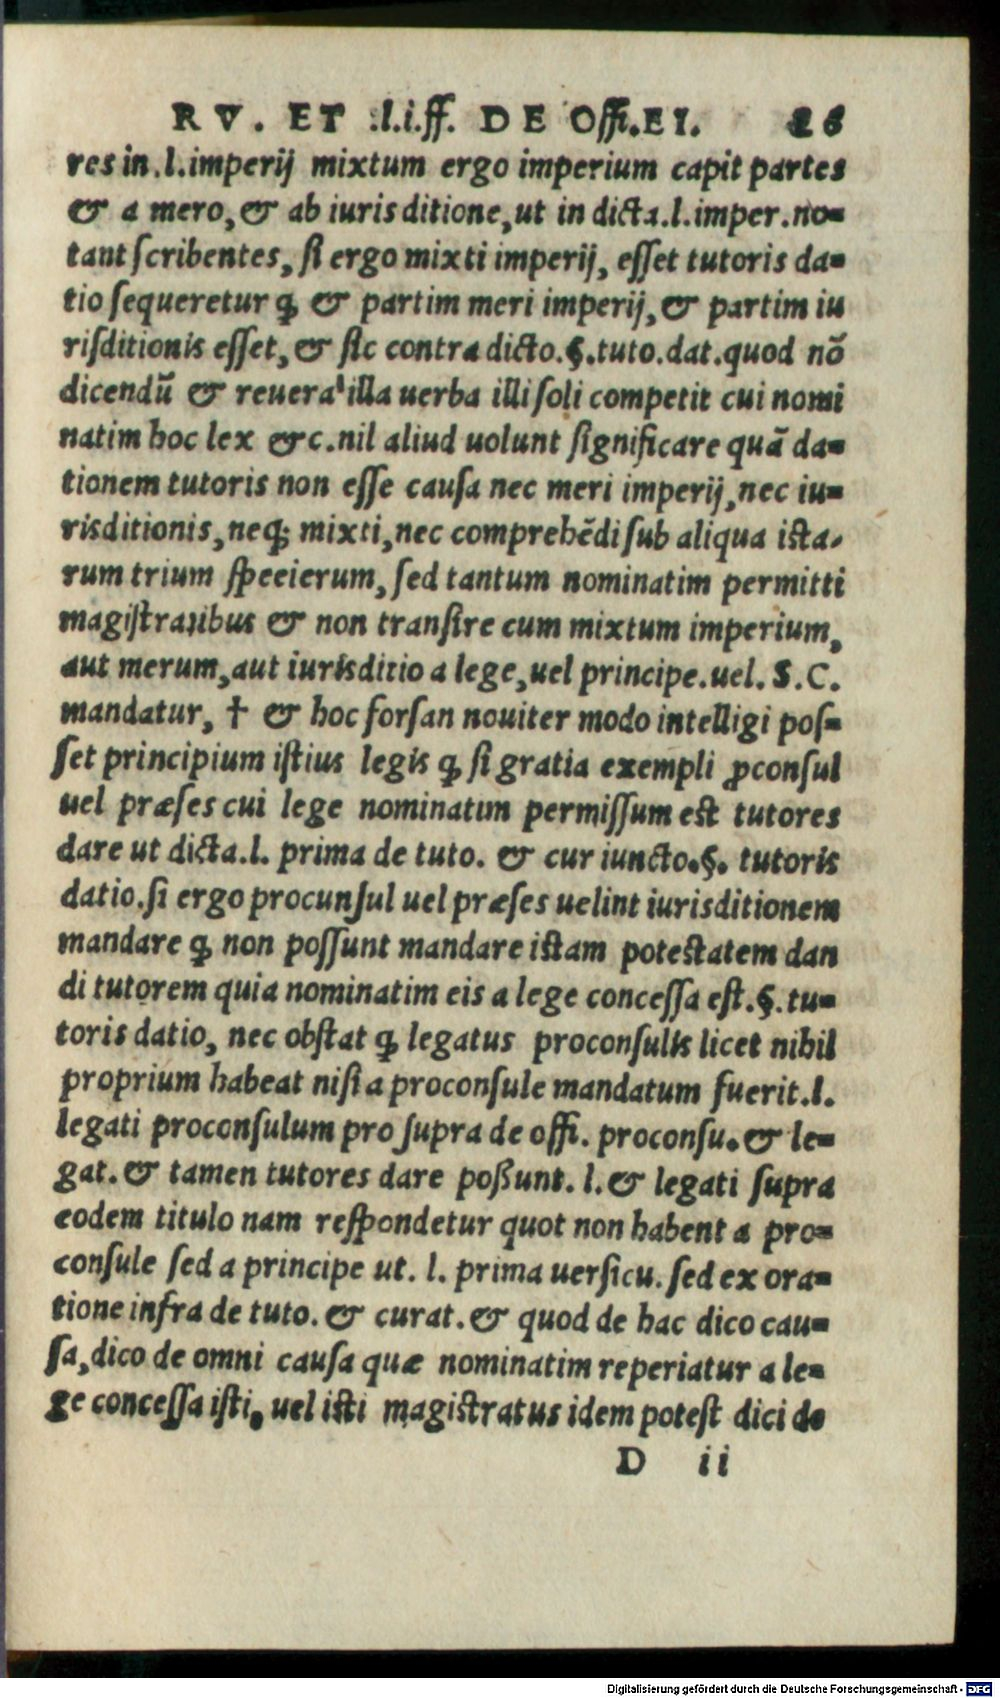 RV. ET .l.i.ff. DE Offi.EI. 26
res in .l.imperij mixtum ergo imperium capit partes
& a mero, & ab iuris ditione, ut in dicta.l.imper.no=
tant ſcribentes, ſi ergo mixti imperij, eſſet tutoris da=
tio ſequeretur ꝙ & partim meri imperij, & partim iu
riſditionis eſſet, & ſic contra dicto.§.tuto.dat.quod nō
dicendū & reuera illa uerba illi ſoli competit cui nomi
natim hoc lex &c.nil aliud uolunt ſignificare quā da=
tionem tutoris non eſſe cauſa nec meri imperij, nec iu=
risditionis, neq; mixti, nec comprehēdi ſub aliqua iſta=
rum trium ſpecierum, ſed tantum nominatim permitti
magiſtratibus & non tranſire cum mixtum imperium,
aut merum, aut iurisditio a lege, uel principe.uel. S.C.
mandatur, † & hoc forſan nouiter modo intelligi poſ=
ſet principium iſtius legis ꝙ ſi gratia exempli ꝓconſul
uel præſes cui lege nominatim permiſſum eſt tutores
dare ut dicta.l. prima de tuto. & cur iuncto.§. tutoris
datio.ſi ergo procunſul uel præſes uelint iurisditionem
mandare ꝙ non poſſunt mandare iſtam poteſtatem dan
di tutorem quia nominatim eis a lege conceſſa eſt.§.tu=
toris datio, nec obſtat ꝙ legatus proconſulis licet nihil
proprium habeat niſi a proconſule mandatum fuerit.l.
legati proconſulum pro ſupra de offi. proconſu.& le=
gat.& tamen tutores dare poßunt. l.& legati ſupra
eodem titulo nam reſpondetur quot non habent a pro=
conſule ſed a principe ut. l. prima uerſicu. ſed ex ora=
tione infra de tuto. & curat. & quod de hac dico cau=
ſa, dico de omni cauſa quæ nominatim reperiatur a le=
ge conceſſa iſti, uel iſti magiſtratus idem poteſt dici de
D ii
Digitalisierung gefördert durch die Deutsche Forschungsgemeinschaft - DFG